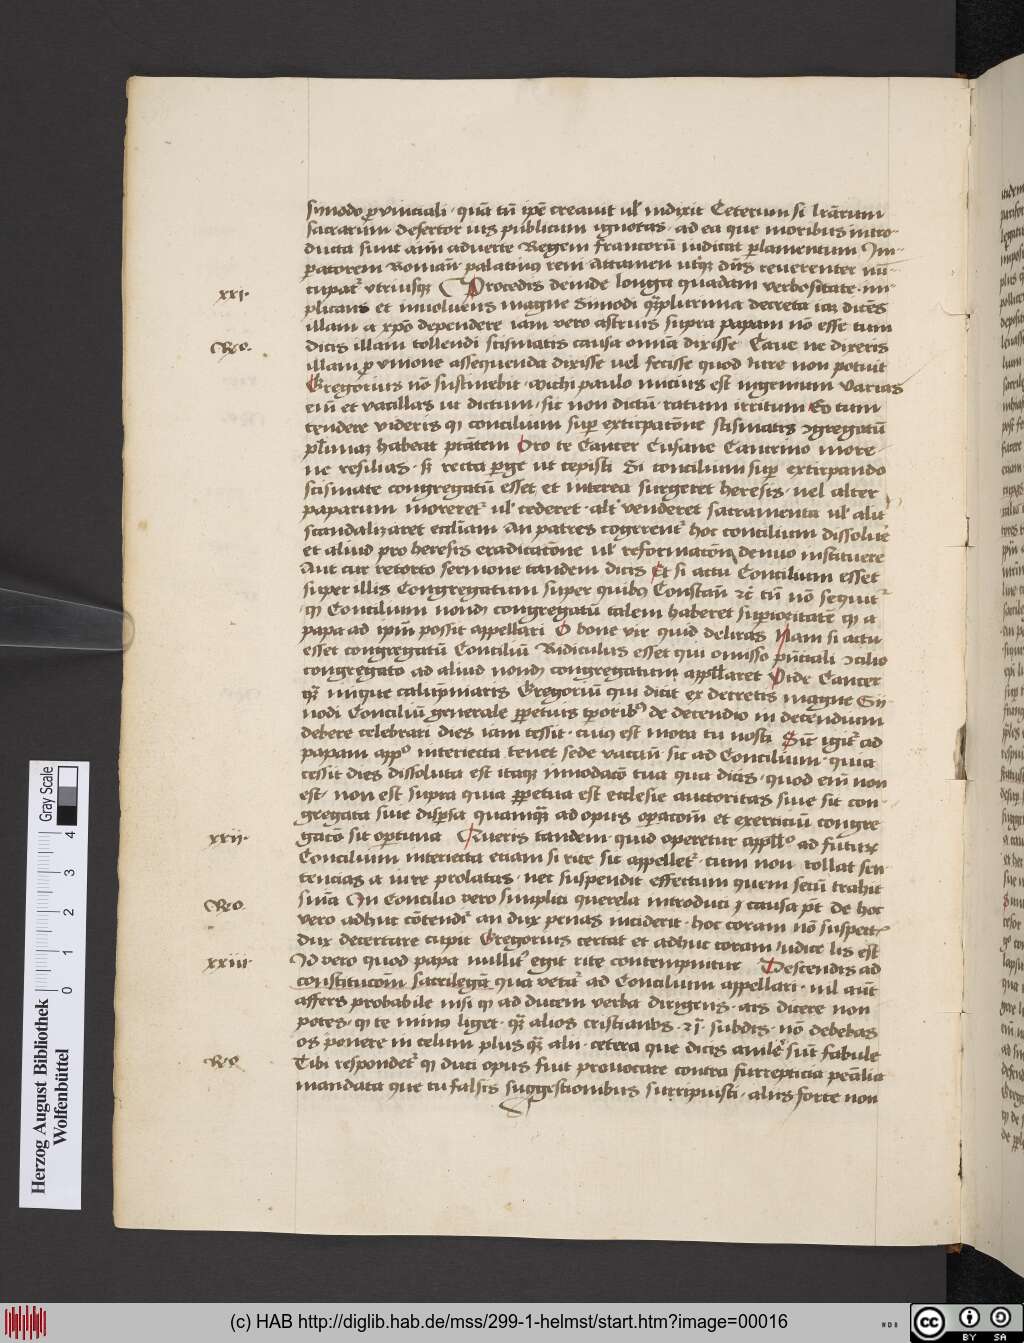 synodo provinciali · quā tū ipe creauit ul indixit Ceterum si lrārum
sacrarum desertor ius publicum ignoras · ad ea que moribus intro-
ducta sunt aīm aduerte Regem francorū iudicat plamentum Im-
patorem Roman palatinꝯ rem Attamen utqz dn̄s reuerenter nū-
cupat utriusqz Procedis deinde longa quadam verbositate · im-
xxi ·
plicans et inuoluens magne Sinodi qplurima decreta iaz dicēs
illam a xpō dependere iam vero astruis supra papam nō esse tum
Reo.
dicis illam tollendi scismatis causa omīa dixisse Caue ne dixeris
illam p vnione assequenda dixisse uel fecisse quod iure non potuit
Gregorius nō sustinebit · Michi paulo inicius est ingenium varias
eiū et vacillas ut dictum · sit non dictū · ratum irritum Eo tum
tendere videris qꝫ concilium sup extirpatōne scismatis ꝯgregatū
plimaz habeat ptātem Oro te Cancer Cusane Cancrino more
ne resilias · sꝫ recta pge ut cepisti Si concilium sup extirpando
scismate congregatū esset et interea surgeret heresis · uel alter
paparum moreret ul cederet · alt venderet sacramenta ul alit
scandalizaret eccliam An patres cogerent hoc concilium dissoluē
et aliud pro heresis eradicatōne ul reformatōn denuo instituere
Aut cur retorto sermone tandem dicis Et si actu Concilium esset
super illis Congregatum super quibꝯ Constan̄ ec̄ tū nō sequit
qꝫ Concilium nondꝫ congregatū talem haberet supioritatē qꝫ a
papa ad ipm̄ possit appellari O bone vir quid deliras Nam si actu
esset congregatū Conciliū Ridiculus esset qui omisso pn̄ciali ꝯcilio
congregato ad aliud nondꝫ congregatum appllaret Vide Cancer
qꝫ inique calupniaris Gregoriū qui dicit ex decretis magne Sy
nodi Conciliū generale ppetuis tporibꝯ de decendio in decendium
debere celebrari dies iam cessit · cuiꝯ est mora tu nosti Sic igit ad
papam appo interiecta tenet sede vacan̄ · sic ad Concilium · quia
cessit dies dissoluta est itaqz innodacō tua qua dicis · quod em̄ non
est · non est supra quia ppetua est ecclesie auctoritas siue sit con-
gregata siue dispsa quamqꝫ ad opus opatōm et exerciciū congre
gacō sit optima Queris tandem · quid operetur appllo ad futurꝫ
xxii ·
Concilium interiecta etiam si rite sit appellet · cum non tollat sen
tencias a iure prolatas · nec suspendit effectum quem secū trahit
Reo.
suūa In Concilio vero simplici querela introduci ꝫ causa pt̄ De hoc
vero adhuc cōtendi an dux penas inciderit · hoc coram nō suspect
dux decertare cupit Gregorius certat et adhuc coram iudice lis est
xxiii
Id vero quod papa nullit egit rite contempnitur Descendis ad
constitucōm sacrilegā qua vetat ad Concilium appellari · nil aūt
affers probabile nisi qꝫ ad ducem verba dirigens · ais dicere non
potes · qꝫ te minꝯ liget · qꝫ alios cristianos · et · subdis · nō debebas
os ponere in celum plus qꝫ alii · cetera que dicis anilē sūt fabule
Reo
Tibi respondet qꝫ duci opus fuit prouocare contra surrepticia penalia
mandata que tu falsis suggestionibus surripuisti · alius forte non
Herzog August Bibliothek
Wolfenbüttel
0 1 2 3 4
Gray Scale
(c) HAB http://diglib.hab.de/mss/299-1-helmst/start.htm?image=00016
WDB
cc BY SA